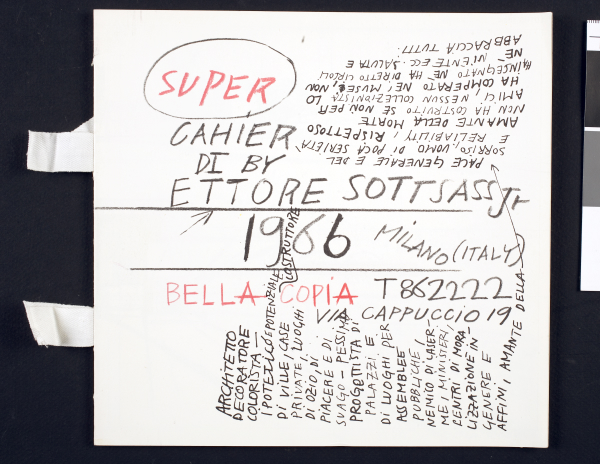 SUPER
CAHIER
DI BY
ETTORE SOTTSASS Jr
1966 MILANO (ITALY)
BELLA COPIA T862222
VIA CAPPUCCIO 19
ARCHITETTO
DECORATORE
COLORISTA —
IPOTETICO E POTENZIALE COSTRUTTORE
DI VILLE, CASE
PRIVATE, LUOGHI
DI OZIO, DI
PIACERE E DI
SVAGO - PESSIMO
PROGETTISTA DI
PALAZZI E
DI LUOGHI PER
ASSEMBLEE
PUBBLICHE,
NEMICO DI CASER-
ME, MINISTERI,
CENTRI DI MORA-
LIZZAZIONE IN
GENERE E
AFFINI, AMANTE DELLA
PACE GENERALE E DEL
SORRISO, UOMO DI POCA SERIETÀ
E RELIABILITY, RISPETTOSO
AMANTE DELLA MORTE
NON HA COSTRUITO SE NON PER
AMICI, NESSUN COLLEZIONISTA LO
HA COMPERATO NEI MUSEI, NON
HA INSEGNATO NÈ HA DIRETTO CIRCOLI
NÈ NIENTE ECC. SALUTA E
ABBRACCIA TUTTI.